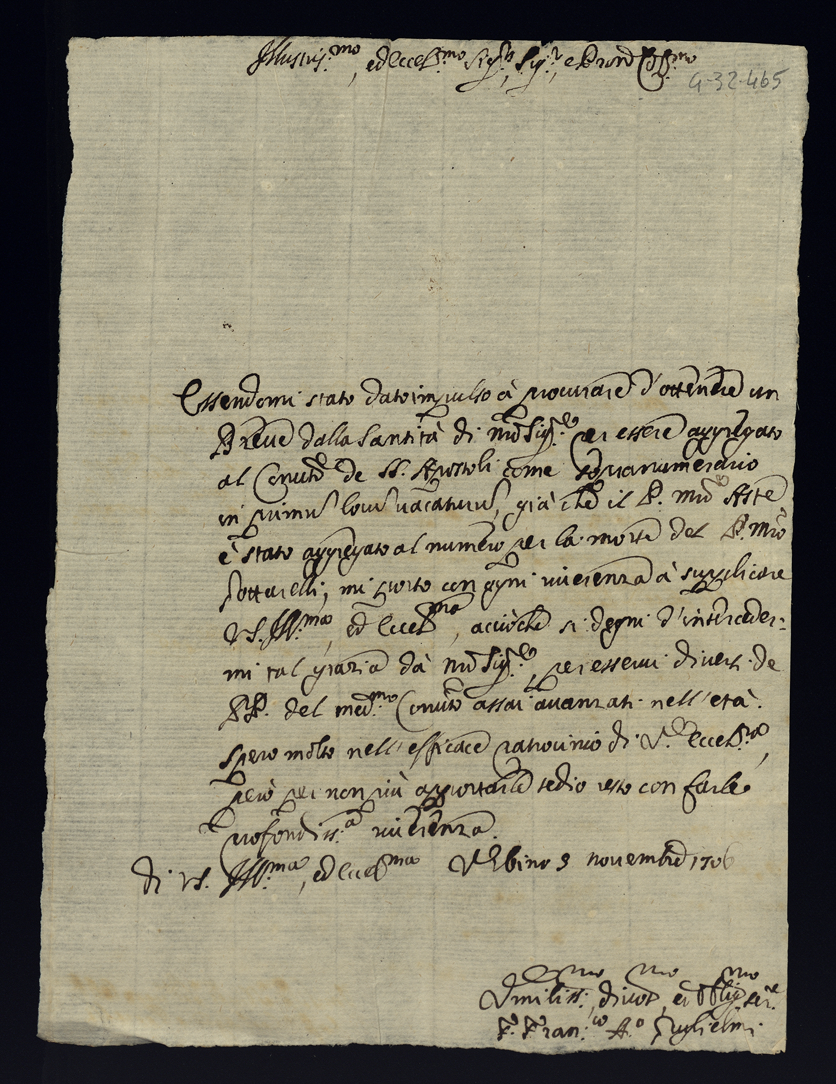 Illustris.mo, ed Eccell.mo Sig.r, Sig.r, e Pron Col.mo
G-32-465
Essendomi stato dato impulso à procurare d'ottenere un
Breve dalla Santità di Nro Sig.re per essere aggregato
al Conuto de SS. Apostoli come sopranumerario
in primus locus vacaturus, già che il P. Mro Aste
è stato aggregato al numero per la morte del P. Mro
Pottarelli, mi porto con ogni riuerenza à supplicare
VS. Ill.ma, ed Eccell.ma, acciòche si degni d'interceder=
mi tal grazia dà Nro Sig.re, per esserui diuersi de
PP. del med.mo Conuto assai auanzati nell'età.
Spero molto nell'efficace patrocinio di V.ra Eccell.za,
però per non più apportarle tedio resto con farle
profondiss.a riuerenza.
Di VS. Ill.ma, ed Eccell.ma Vrbino 3 novembre 1706
Vmiliss.mo, diuot.mo, ed Obblig.mo ser.e
F. Fran.co A.o Guglielmi